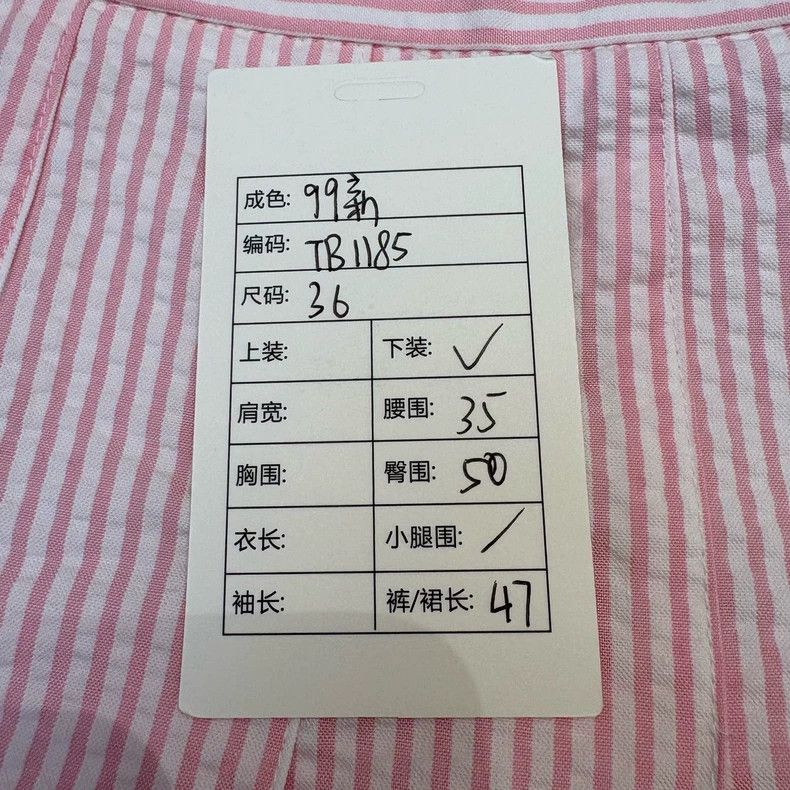 成色: 99新
编码: TB1185
尺码: 36
上装: 下装: ✓
肩宽: 腰围: 35
胸围: 臀围: 50
衣长: 小腿围: /
袖长: 裤/裙长: 47